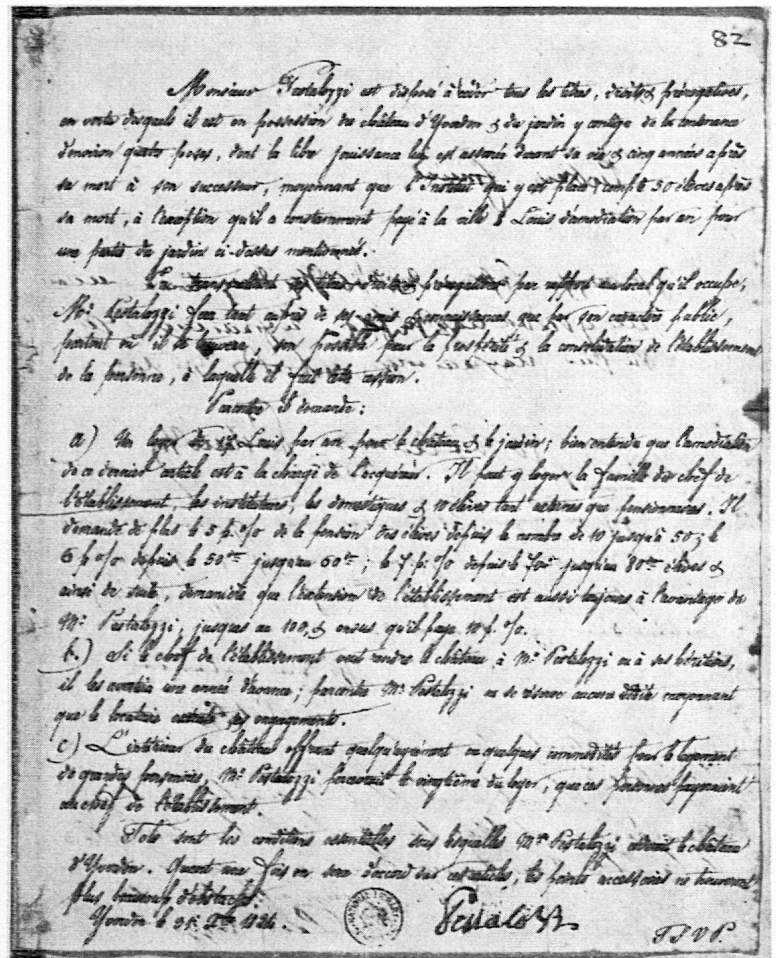 82
Monsieur Pestalozzi est disposé à céder tous les titres, droits & prérogatives,
en vertu desquels il est en possession du château d'Yverdon & du jardin y contigu de la contenance
d'environ quatre poses, dont la libre jouissance lui est assurée durant sa vie & cinq années après
sa mort à son successeur, moyennant que l'Institut qui y est placé compte 50 élèves après
sa mort, à l'exception qu'il a constamment payé à la ville 8 Louis d'amodiation par an pour
une partie du jardin ci-dessus mentionné.
En droits & prérogatives par rapport au local qu'il occupe,
Mr. Pestalozzi fera tant auprès de ses amis & connaissances, que par son caractère public,
partout où il se trouvera, son possible pour la prospérité & la consolidation de l'établissement
de la personne, à laquelle il fait cette cession.
Parcontre Il demande:
a) Un loyer de Louis par an pour le château & le jardin; bien entendu que l'amodiation
de ce dernier article est à la charge de l'acquéreur. Il peut y loger la famille du chef de
l'établissement, les instituteurs, les domestiques & élèves tant externes que pensionnaires. Il
demande de plus le 5 p. % de la pension des élèves depuis le nombre de 10 jusqu'à 50; le
6 p % depuis le 50me jusqu'au 60me; le 7 p. % depuis le 70me jusqu'au 80me élèves &
ainsi de suite, de manière que l'extension de l'établissement est aussi toujours à l'avantage de
Mr. Pestalozzi, jusques au 100, & ensus qu'il paye 10 p. %.
b.) Si le chef de l'établissement veut rendre le château à Mr. Pestalozzi ou à ses héritiers,
il les avertira une année d'avance; parcontre Mr. Pestalozzi ne se réserve aucune dédite moyennant
que le locataire exécute ses engagements.
c) L'intérieur du château offrant quelqu'agrément ou quelques commodités pour le logement
de grandes personnes, Mr. Pestalozzi percevrait le vingtième du loyer, que ces personnes payeraient
au chef de l'établissement.
Tels sont les conditions essentielles sous lesquelles Mr Pestalozzi céderait le château
d'Yverdon. Quant une fois on sera d'accord sur ces articles, les points accessoires ne trouveront
plus beaucoup d'obstacles.
Yverdon le 1824.
Pestalozzi
T S V P.